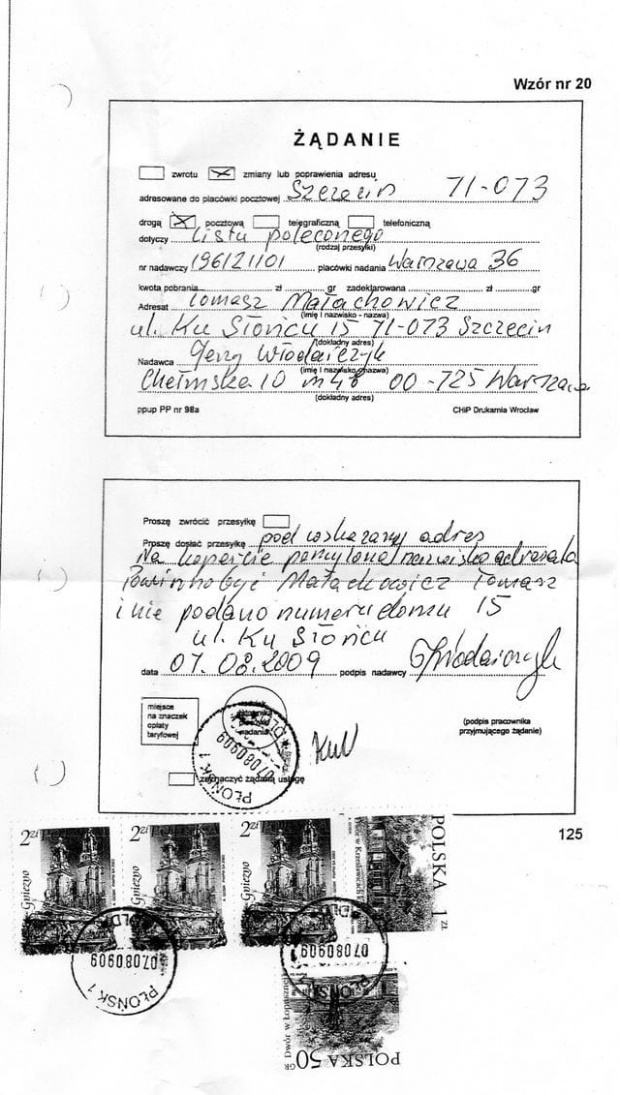 Wzór nr 20
ŻĄDANIE
zwrotu zmiany lub poprawienia adresu
adresowane do placówki pocztowej Szczecin 71-073
drogą pocztową telegraficzną telefoniczną
dotyczy Listu poleconego
(rodzaj przesyłki)
nr nadawczy 196121101 placówki nadania Warszawa 36
kwota pobrania zł gr zadeklarowana zł gr
Adresat Tomasz Małachowicz
(imię i nazwisko - nazwa)
ul. Ku Słońcu 15 71-073 Szczecin
(dokładny adres)
Nadawca Jerzy Włodarczyk
(imię i nazwisko - nazwa)
Chełmska 10 m 48 00-725 Warszawa
(dokładny adres)
ppup PP nr 98a CHiP Drukarnia Wrocław
Proszę zwrócić przesyłkę
Proszę dosłać przesyłkę pod wskazany adres
Na kopercie pomylono nazwisko adresata
Powinno być Małachowicz Tomasz
i nie podano numeru domu 15
ul. Ku Słońcu
data 07.08.2009 podpis nadawcy GWłodarczyk
miejsce
na znaczek
opłaty
taryfowej
(podpis pracownika
przyjmującego żądanie)
070809 09
PŁOŃSK 1
zaznaczyć żądaną usługę
125
2zł Gniezno
2zł Gniezno
2zł Gniezno
POLSKA 1 ZŁ
070809 09
PŁOŃSK 1
070809 09
PŁOŃSK
POLSKA 50 GR